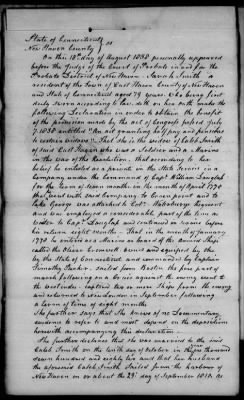 State of Connecticut
New Haven County
On this 18th day of August 1838 personally appeared
before the Judge of the Court of Probate in and for the
Probate District of New Haven Sarah Smith a
resident of the Town of East Haven County of New Haven
and State of Connecticut aged 79 years. Who being first
duly sworn according to law, doth on her oath make the
following Declaration in order to obtain the benefit
of the provision made by the act of Congress passed July
7. 1838 entitled "An act granting half pay and pensions
to certain widows". That she is the widow of Caleb Smith
of said East Haven who was a Soldier and a Marine
in the War of the Revolution, that according to her
belief he enlisted as a private in the State Service in a
Company under the command of Capt William Douglass
for the Term of seven months in the month of April 1776
that went with said company to Crown point and to
Lake George was attached to Regiment
and was employed a considerable part of the time as
to Capt Douglass and continued in service before
his return eight months - That in the month of January
1778 he entered as a Marine on board of the armed Ship
called the Oliver Cromwell owned and equipped by the
State of Connecticut and commanded by Captain
Timothy Parker, sailed from Boston the fore part of
march following on a cruise against the enemy went to
the West indies captured two or more Ships from the enemy
and returned to New London in September following
a term of eight months
She further says that She knows of no Documentary
evidence to refer to and must depend on the depositions
herewith accompanying this declaration
She further declares that she was married to the said
Caleb Smith on the tenth day of October in the year thousand
seven hundred and eighty two and that her husband
the aforesaid Caleb Smith Sailed from the harbour of
New Haven on or about the 29th day of September 1813. as